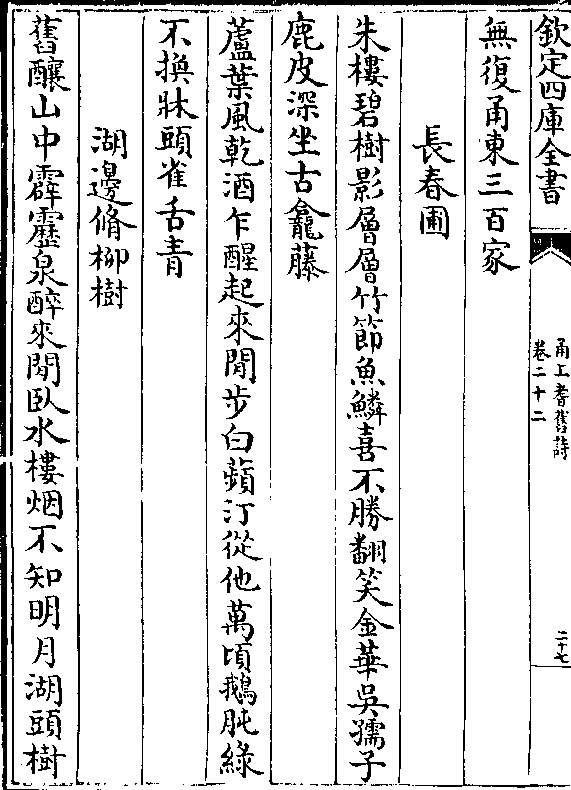 欽定四庫全書
甬上耆舊詩
卷二十二
二十七
無復甬東三百家
長春圃
朱樓碧樹影層層竹節魚鱗喜不勝翻笑金華吳孺子
鹿皮深坐古龕藤
蘆葉風乾酒乍醒起來閒步白蘋汀從他萬頃鵝肫綠
不換牀頭雀舌青
湖邊脩柳樹
舊釀山中霹靂泉醉來閒臥水樓烟不知明月湖頭樹